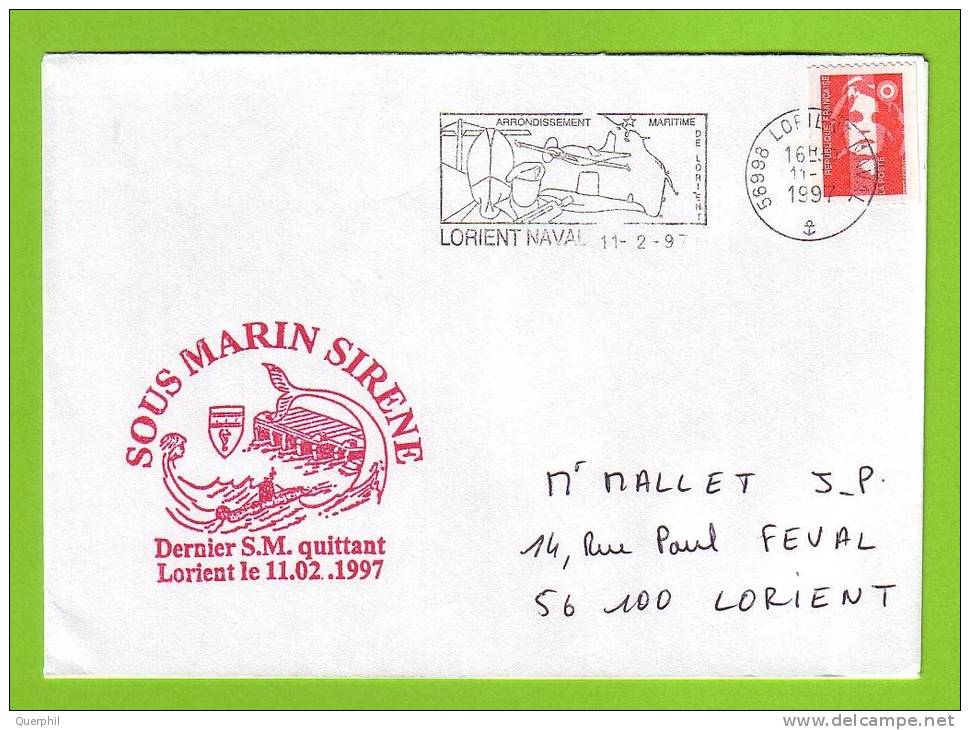 ARRONDISSEMENT MARITIME
DE LORIENT
LORIENT NAVAL 11-2-97
56998 LORIENT NAVAL
16H
11-
1997
REPUBLIQUE FRANÇAISE
LA POSTE
SOUS MARIN SIRENE
Dernier S.M. quittant
Lorient le 11.02..1997
Mr MALLET J-P.
14, Rue Paul FEVAL
56 100 LORIENT
Querphil
www.delcampe.net